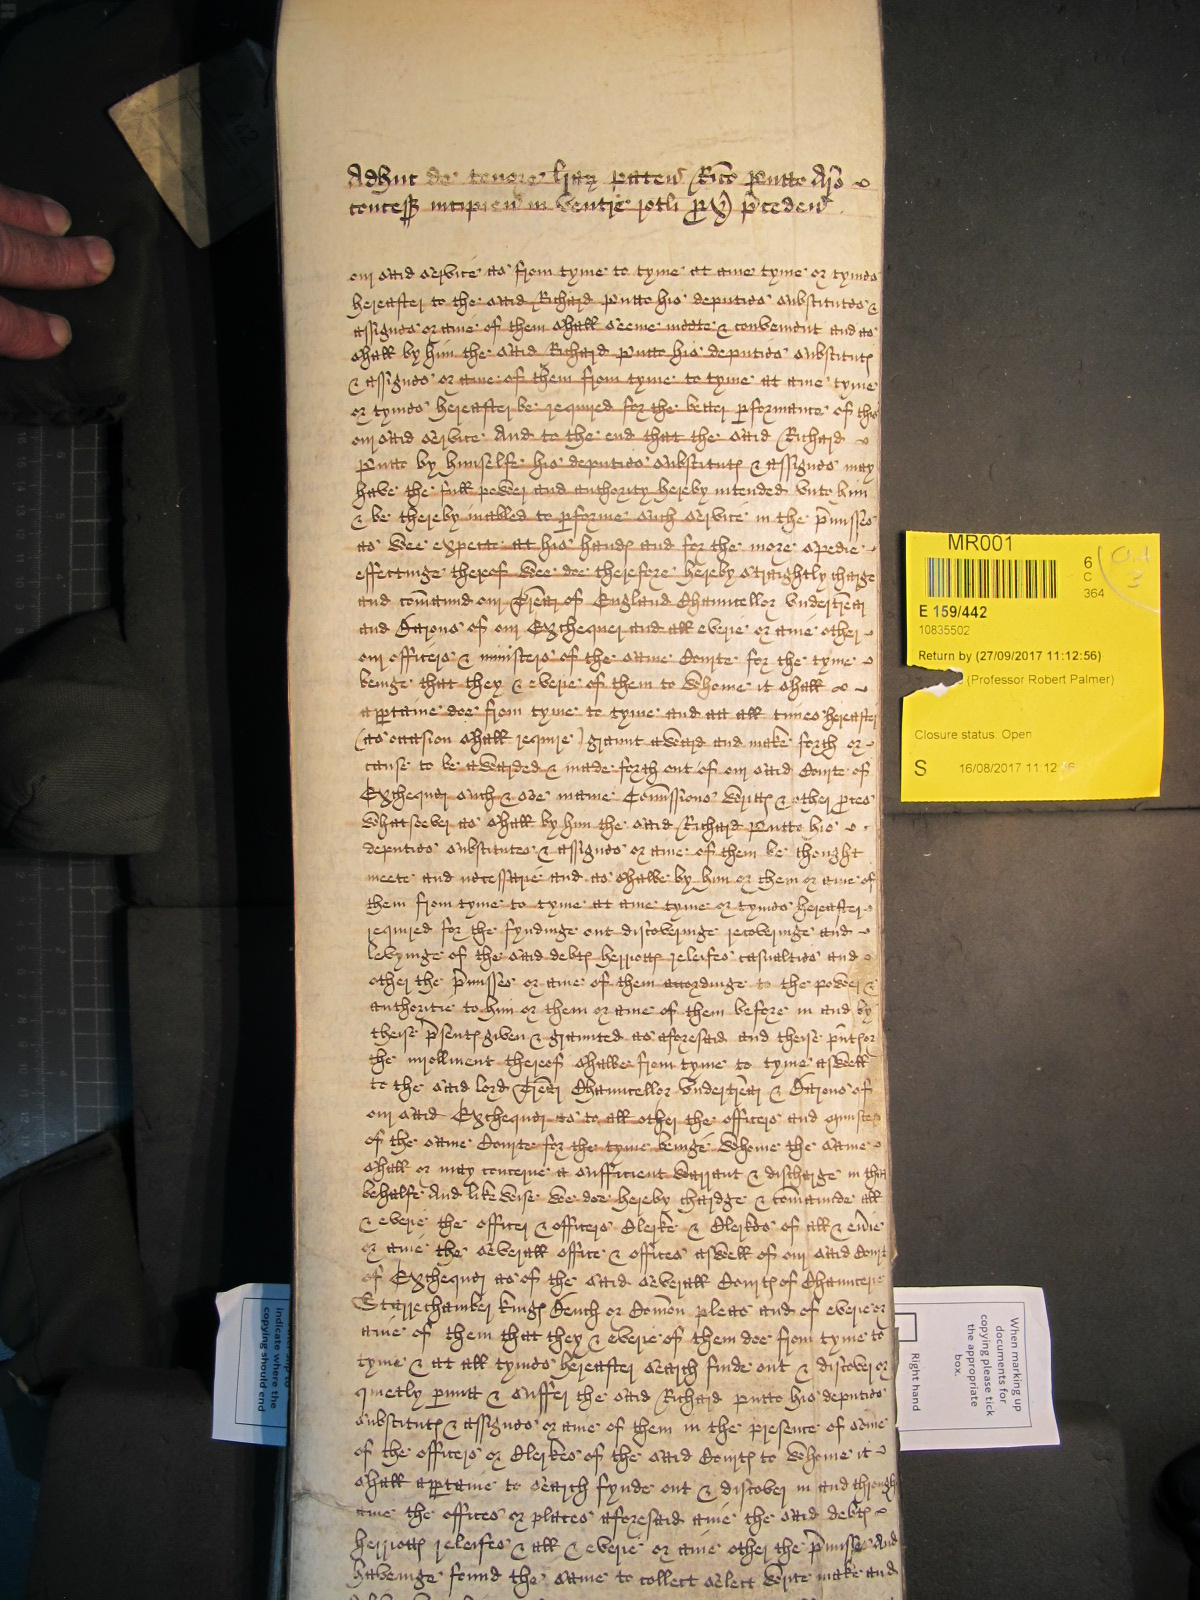 Adhuc de tenore lrar paten Rico Putto Ar
concess incipien in ventre rotli px preceden
our said service as from tyme to tyme at anie tyme or tymes
hereafter to the said Richard Putto his deputies substitutes &
assignes or anie of them shall seeme meete & convenient and as
shall by him the said Richard Putto his deputies substitut
& assignes or anie of them from tyme to tyme at anie tyme
or tymes hereafter be required for the better pformance of this
our said service And to the end that the said Richard
Putto by himselfe his deputies substitut & assignes may
have the full power and authority hereby intended unto him
& be thereby inabled to pforme such service in the pmisses
as wee expect at his hand and for the more spedie
effectinge thereof wee doe therefore hereby straightly charge
and comaund our Trear of England Chauncellor Undertrear
and Barons of our Exchequer and all everie or anie other
our officers & ministers of the same Courte for the tyme
beinge that they & everie of them to whome it shall
apptaine doe from tyme to tyme and at all times hereafter
(as occasion shall require) graunt award and make forth or
cause to be awarded & made forth out of our said Courte of
Exchequer such & soe manie Comissions writt & other pces
whatsoever as shall by him the said Richard Putto his
deputies substitutes & assignes or anie of them be thought
meete and necessarie and as shalbe by him or them or anie of
them from tyme to tyme at anie tyme or tymes hereafter
required for the fyndinge out discoveringe recoveringe and
levyinge of the said debt herriott releifes casualties and
other the pmisses or anie of them accordinge to the power &
authoritie to him or them or anie of them before in and by
theise psent given & graunted as aforesaid and theise pnt or
the inrollment thereof shalbe from tyme to tyme aswell
to the said lord Trear Chauncellor Undertrear & Barons of
our said Exchequer as to all other the officers and minister
of the same Courte for the tyme beinge whome the same
shall or may concerne a sufficient warrant & discharge in that
behalfe And likewise wee doe hereby chardge & comaunde all
& everie the officer & officers Clerke & Clerkes of all & everie
or anie the severall office & offices aswell of our said Court
of Exchequer as of the said severall Court of Chauncerie
Starrechamber Kings Bench or Comon pleas and of everie or
anie of them that they & everie of them doe from tyme to
tyme & at all tymes hereafter search finde out & discover or
quietly pmitt & suffer the said Richard Putto his deputies
substitut & assignes or anie of them in the presence of some
of the officers or Clerkes of the said Court to whome it
shall apptaine to search fynde out & discover in and through
anie the offices or places aforesaid anie the said debt
herriott releifes & all & everie or anie other the pmisses And
haveinge found the same to collect select write make and
MR001
6
C
364
E 159/442
10835502
Return by (27/09/2017 11:12:56)
(Professor Robert Palmer)
Closure status: Open
S 16/08/2017 11:12
indicate where the
copying should end
When marking up
documents for
copying please tick
the appropriate
box.
Right hand